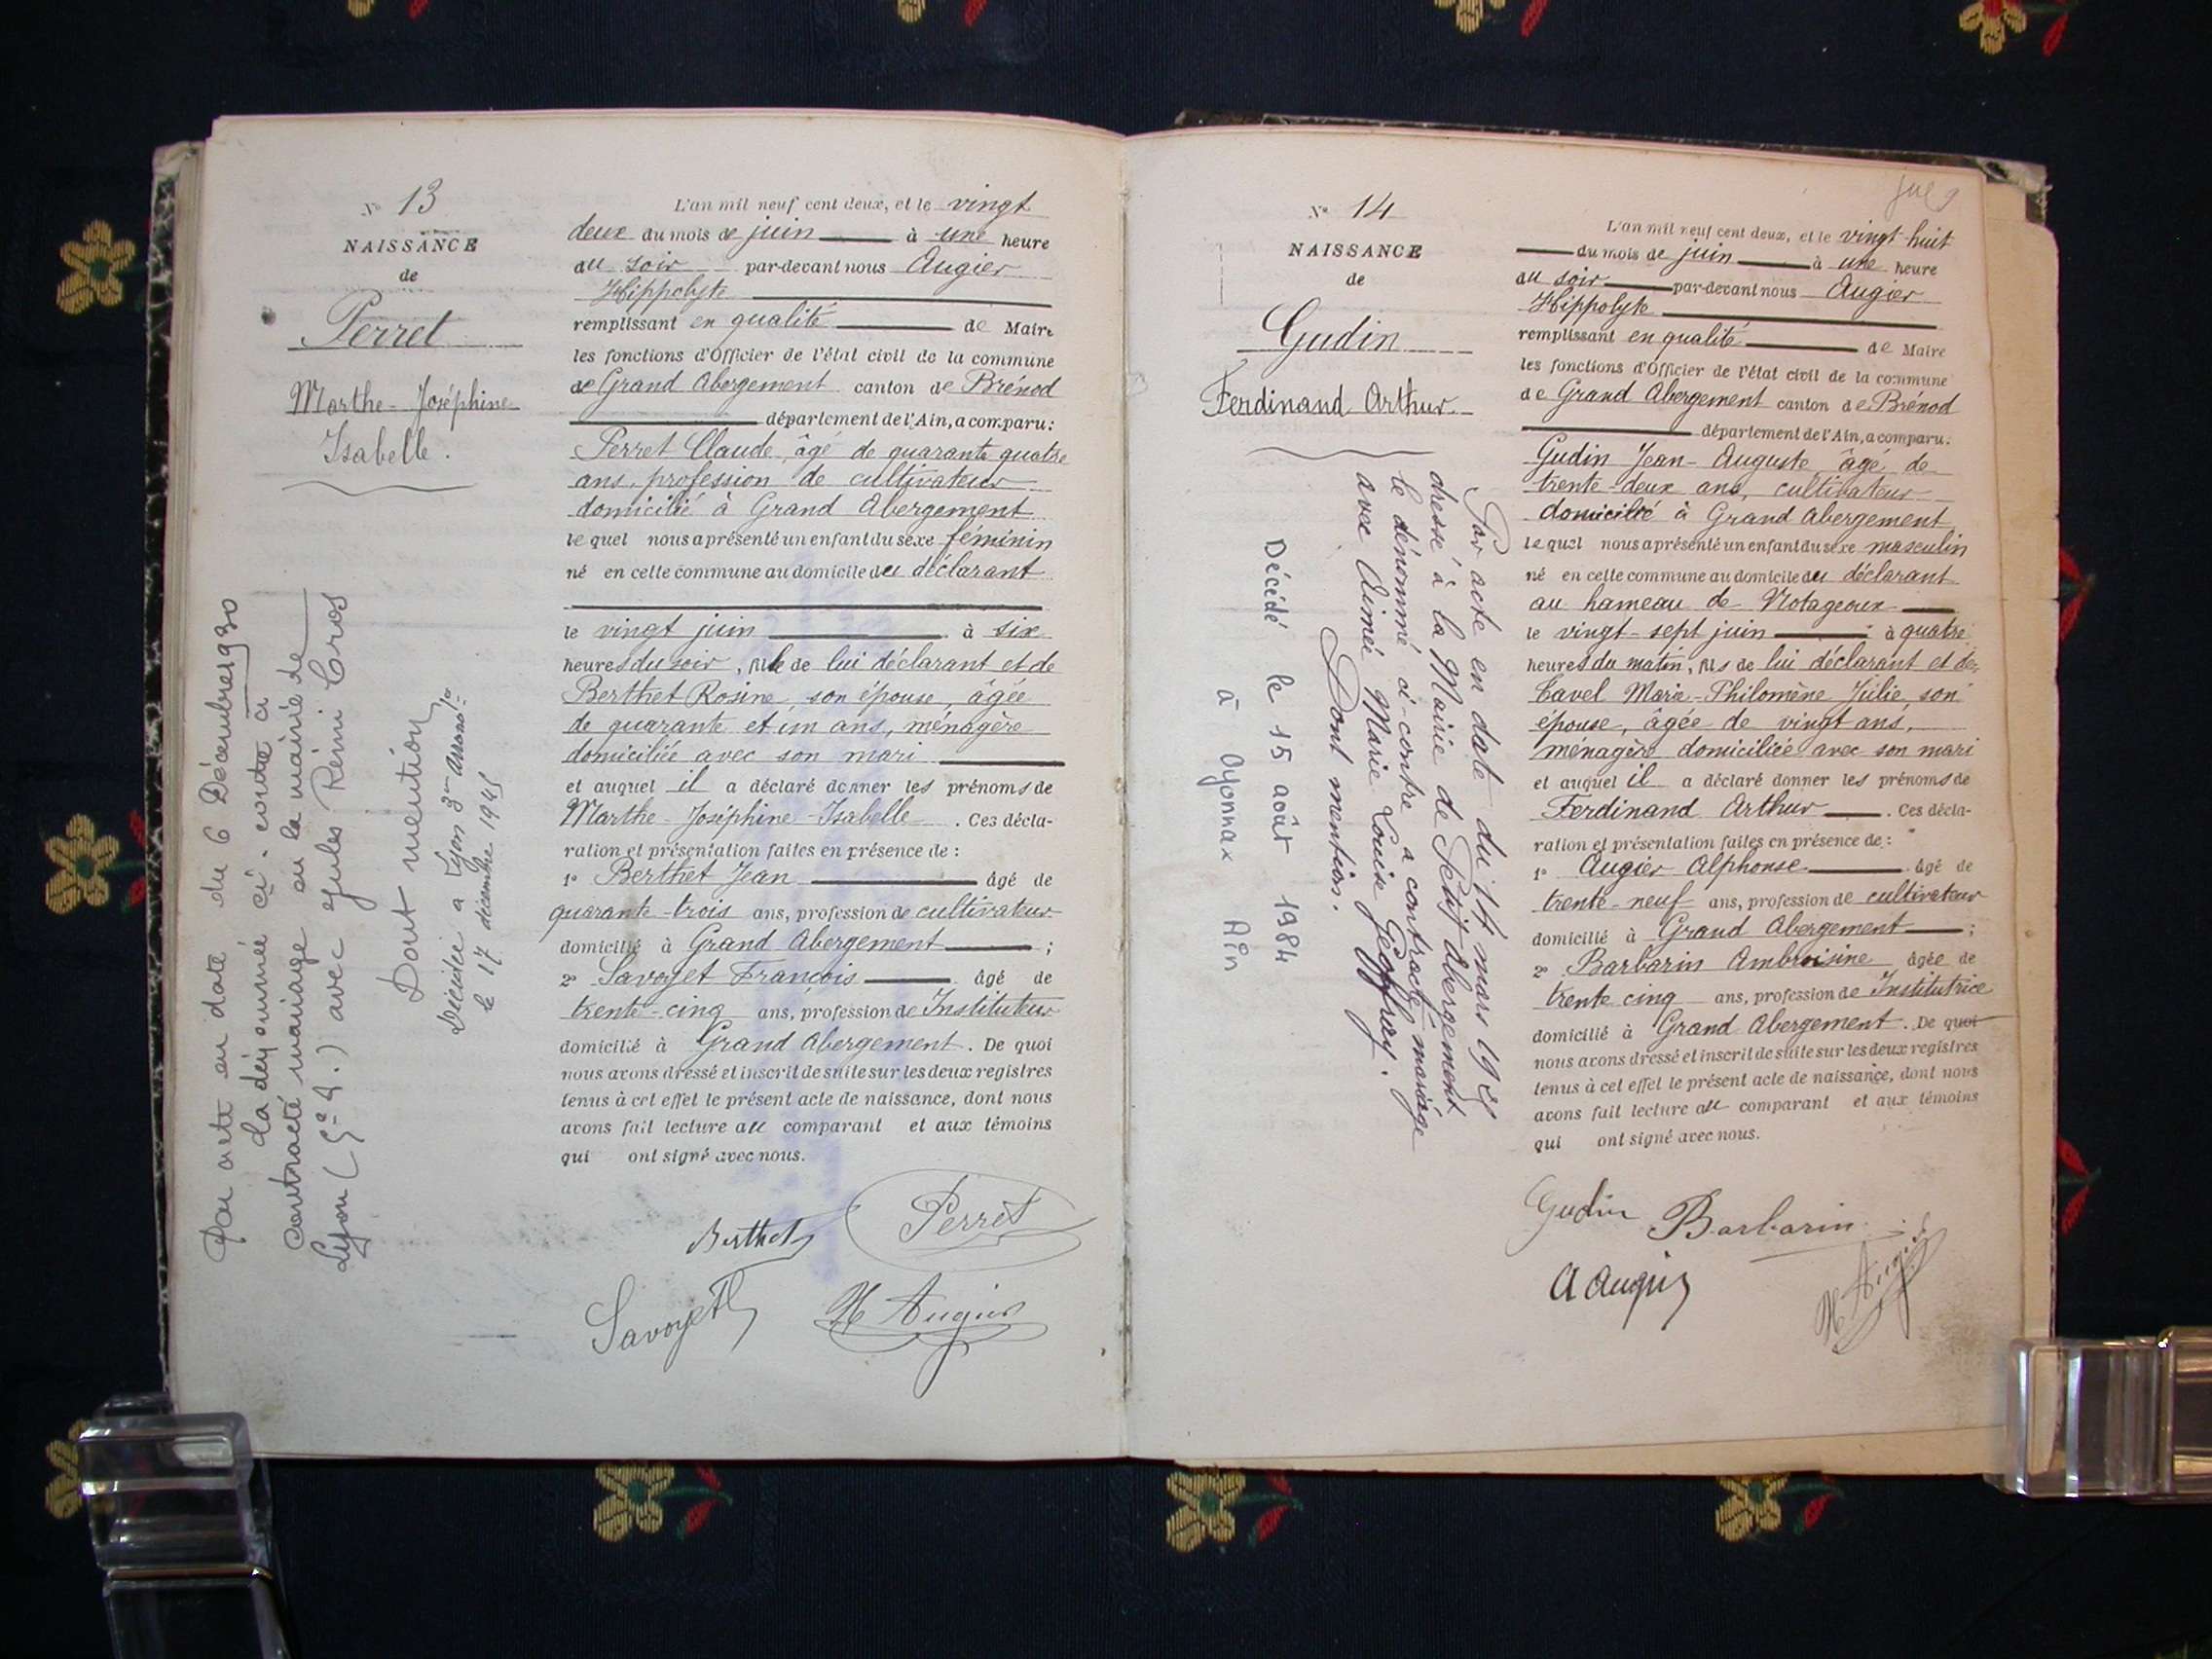 N° 13
NAISSANCE
de
Perret
Marthe-Joséphine
Isabelle.
Par acte en date du 6 Décembre 1930
la dénommée ci-contre a
contracté mariage en la mairie de
Lyon ( ) avec Jules Rémi Cros
Dont mention
Décédée à Lyon 3me arrondt
le 17 décembre 1945
L'an mil neuf cent deux, et le vingt
deux du mois de juin à une heure
du soir par-devant nous Augier
Hippolyte
remplissant en qualité de Maire
les fonctions d'Officier de l'état civil de la commune
de Grand Abergement canton de Brénod
département de l'Ain, a comparu:
Perret Claude, âgé de quarante quatre
ans, profession de cultivateur
domicilié à Grand Abergement
lequel nous a présenté un enfant du sexe féminin
né en cette commune au domicile du déclarant
le vingt juin à six
heures du soir, fille de lui déclarant et de
Berthet Rosine, son épouse, âgée
de quarante et un ans, ménagère
domiciliée avec son mari
et auquel il a déclaré donner les prénoms de
Marthe-Joséphine-Isabelle. Ces décla-
ration et présentation faites en présence de:
1° Berthet Jean âgé de
quarante-trois ans, profession de cultivateur
domicilié à Grand Abergement;
2° Savoyet François âgé de
trente-cinq ans, profession de Instituteur
domicilié à Grand Abergement. De quoi
nous avons dressé et inscrit de suite sur les deux registres
tenus à cet effet le présent acte de naissance, dont nous
avons fait lecture au comparant et aux témoins
qui ont signé avec nous.
Berthet Perret
Savoyet H Augier
N° 14
NAISSANCE
de
Gudin
Ferdinand Arthur
Par acte en date du 14 mars 19
dressé à la Mairie de Petit Abergement
le dénommé ci-contre a contracté mariage
avec Aimée Marie Louise Jeoffray.
Dont mention.
Décédé le 15 août 1984
à Oyonnax Ain
L'an mil neuf cent deux, et le vingt-huit
du mois de juin à une heure
du soir par-devant nous Augier
Hippolyte
remplissant en qualité de Maire
les fonctions d'Officier de l'état civil de la commune
de Grand Abergement canton de Brénod
département de l'Ain, a comparu:
Gudin Jean-Auguste, âgé de
trente-deux ans, cultivateur
domicilié à Grand Abergement
lequel nous a présenté un enfant du sexe masculin
né en cette commune au domicile du déclarant
au hameau de Notageoux
le vingt-sept juin à quatre
heures du matin, fils de lui déclarant et de
Cavel Marie-Philomène Julie, son
épouse, âgée de vingt ans,
ménagère domiciliée avec son mari
et auquel il a déclaré donner les prénoms de
Ferdinand Arthur. Ces décla-
ration et présentation faites en présence de:
1° Augier Alphonse âgé de
trente-neuf ans, profession de cultivateur
domicilié à Grand Abergement;
2° Barbarin Ambroisine âgée de
trente cinq ans, profession de Institutrice
domicilié à Grand Abergement. De quoi
nous avons dressé et inscrit de suite sur les deux registres
tenus à cet effet le présent acte de naissance, dont nous
avons fait lecture au comparant et aux témoins
qui ont signé avec nous.
Gudin Barbarin
A Augier H Augier